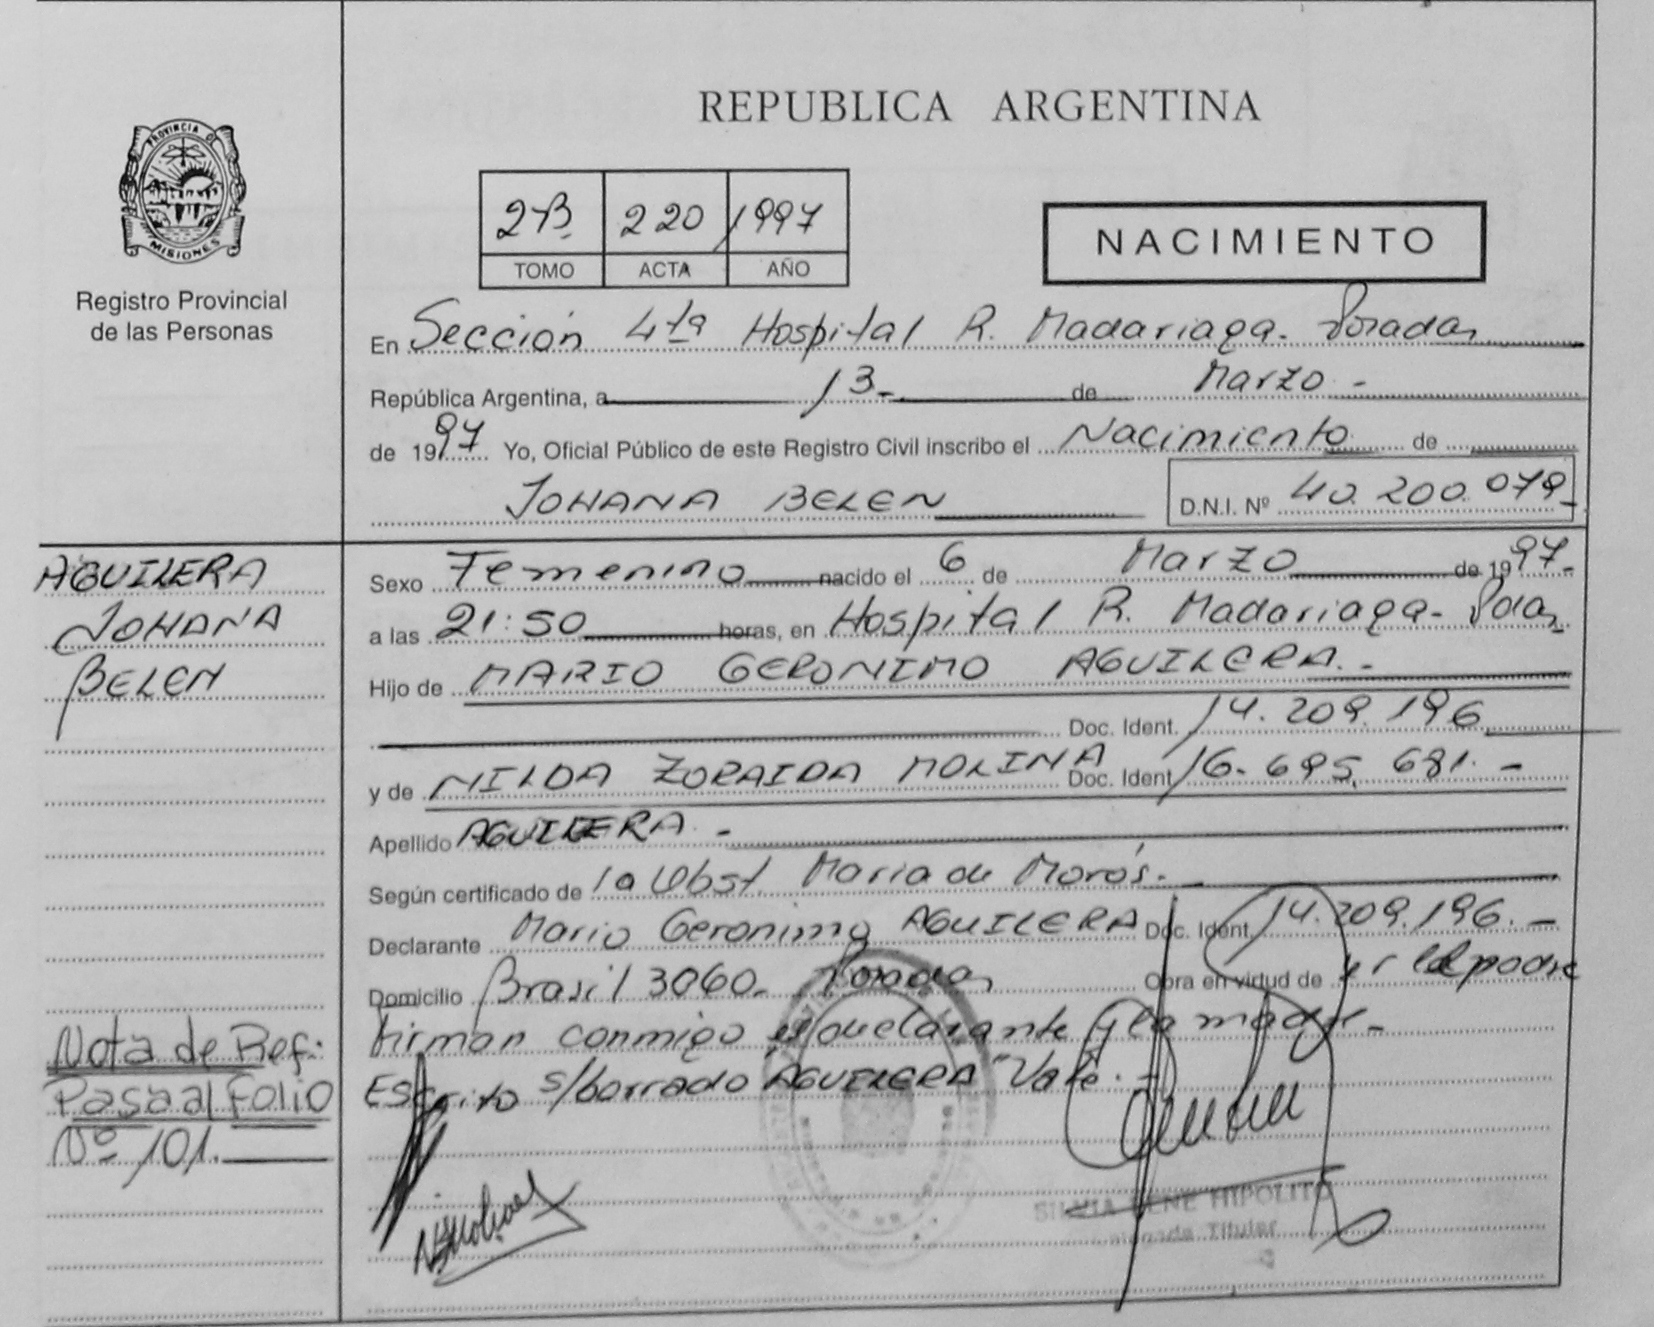 REPUBLICA ARGENTINA
PROVINCIA DE
MISIONES
Registro Provincial
de las Personas
2B 220 1997
TOMO ACTA AÑO
NACIMIENTO
En Sección 4ta Hospital R. Madariaga- Posadas
República Argentina, a 13- de Marzo -
de 1997 Yo, Oficial Público de este Registro Civil inscribo el Nacimiento de
JOHANA BELEN D.N.I. Nº 40.200.079-
AGUILERA
JOHANA
BELEN
Sexo Femenino nacido el 6 de Marzo de 1997-
a las 21:50 horas, en Hospital R. Madariaga- Pdas
Hijo de MARIO GERONIMO AGUILERA.-
Doc. Ident. 14.209.196
y de NILDA ZORAIDA MOLINA Doc. Ident 16.695.681.-
Apellido AGUILERA.-
Según certificado de la Obst. Maria de Morós.-
Declarante Mario Geronimo AGUILERA Doc. Ident. 14.209.196.-
Domicilio Brasil 3060- Posadas Obra en virtud de padre
firman conmigo declarante y la madre-
Escrito s/borrado AGUILERA "Vale.-
Nota de Ref:
Pasa al Folio
Nº 101.
SILVIA IRENE HIPOLITO
Titular